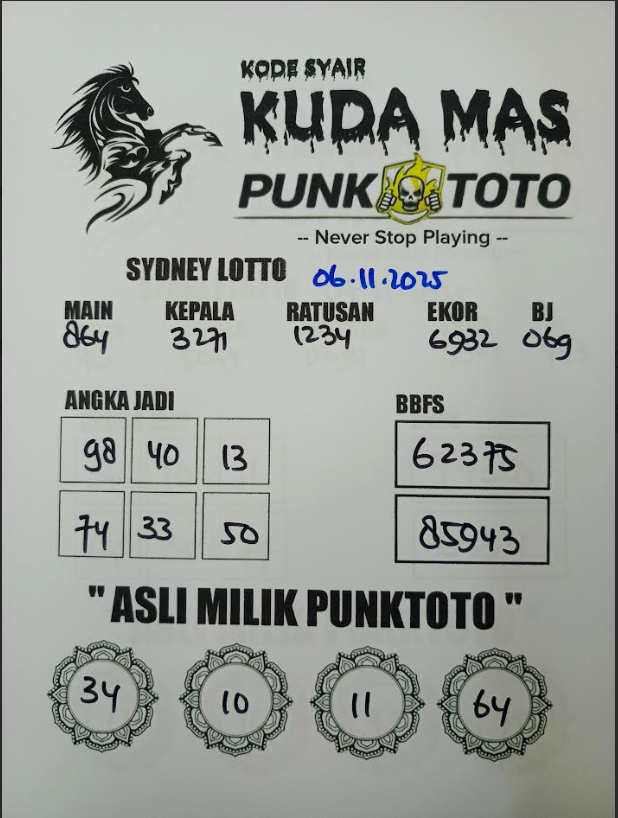 KODE SYAIR
KUDA MAS
PUNK TOTO
-- Never Stop Playing --
SYDNEY LOTTO 06.11.2025
MAIN KEPALA RATUSAN EKOR BJ
864 3271 1234 6932 069
ANGKA JADI BBFS
98 40 13 62375
74 33 50 85943
" ASLI MILIK PUNKTOTO "
34 10 11 64